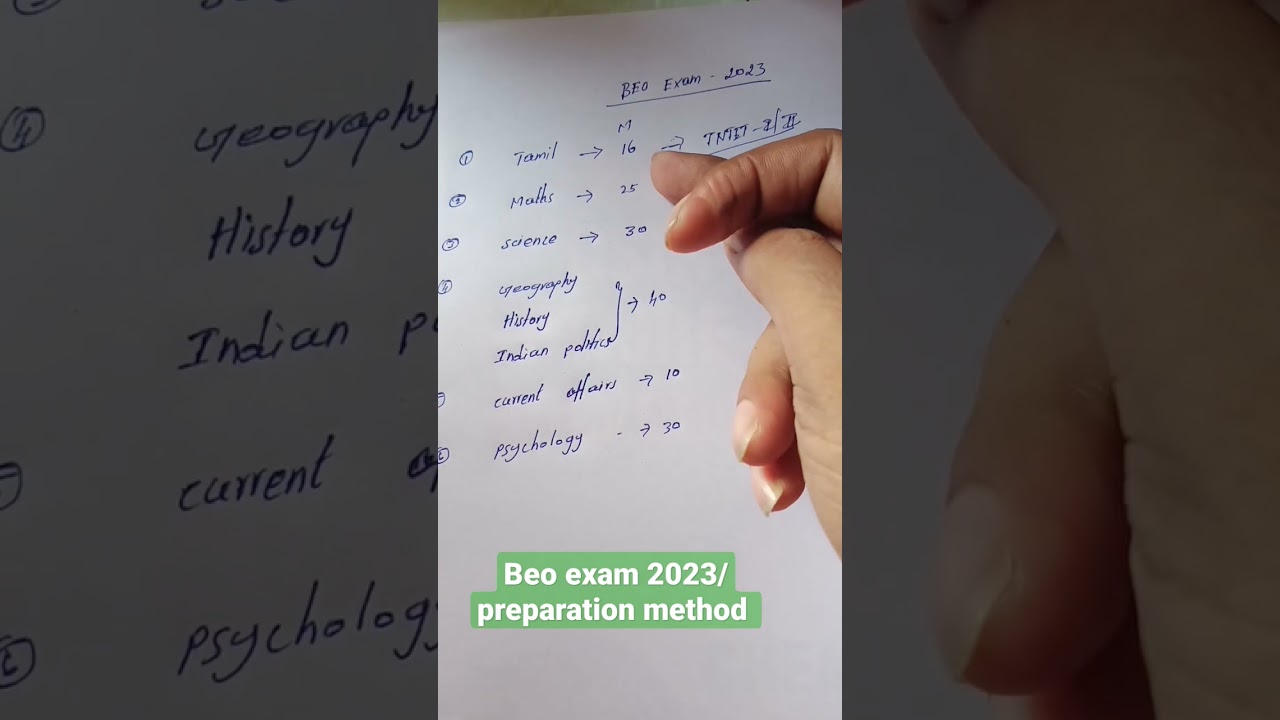 BEO Exam - 2023
M
① Tamil → 16 → TNTET - I/II
② Maths → 25
③ science → 30
④ Geography
History → 40
Indian politics
current affairs → 10
⑥ psychology - → 30
Beo exam 2023/
preparation method
④ Geography
History
Indian po
current
psychology